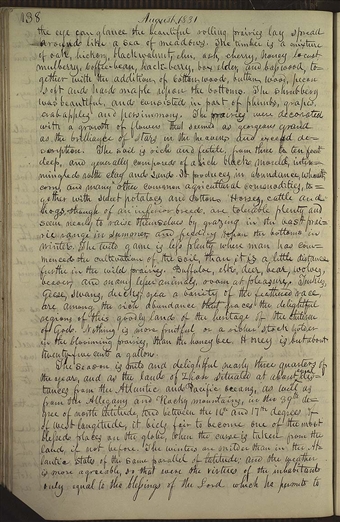 138
August 1831
the eye can glance the beautiful rolling prairies lay spread
around like a sea of meadows. The timber is a mixture
of oak, hickory, black walnut, elm, ash, cherry, honey locust
mulberry, coffee bean, hackberry, box elder, and basswood, to-
gether with the addition of cottonwood, button wood, pecan
soft and hard maple upon the bottoms. The shrubbery
was beautiful, and consisted in part of plumbs, grapes,
crabapples and persimmons. The prairies were decorated
with a growth of flowers that seemed as gorgeous grand
as the brilliance of stars in the heavens and exceed de-
scription. The soil is rich and fertile, from three to ten feet
deep, and generally composed of a rich black mould, inter-
mingled with clay and sand. It produces in abundance, wheat,
corn, and many other common agricultural commodities, to-
gether with sweet potatoes and cotton. Horses, cattle and
hogs, though of an inferior breed, are tolerable plenty and
seem nearly to raise themselves by grazing in the vast prai-
rie range in summer and feeding upon the bottoms in
winter. The wild game is less plenty where man has com-
menced the cultivation of the soil, than it is a little distance
further in the wild prairies. Buffaloe, elk, deer, bear, wolves,
beaver, and many lesser animals roam at pleasure. Turkies,
Geese, swans, ducks, yea a variety of the feathered race
are among the rich abundance that graces the delightful
regions of this goodly land of the heritage of the children
of God. Nothing is more fruitful or a richer stockholder
in the blooming prairies, than the honey bee. Honey is but about
twenty five cents a gallon.
The season is mild and delightful nearly three quarters of
the year, and as the land of Zion situated at about equal dis-
tances from the Atlantic and Pacific oceans, as well as
from the Allegany and Rocky mountains, in the 39th de-
gree of north latitude, and between the 16th and 17th degrees
of west longitude, it bids fair to become one of the most
blessed places on the globe, when the curse is taken from the
land, if not before. The winters are milder than in the At-
lantic states of the same parallel of latitude; and the weather
is more agreeable, so that were the virtues of the inhabitants
only equal to the blessings of the Lord which he permits to